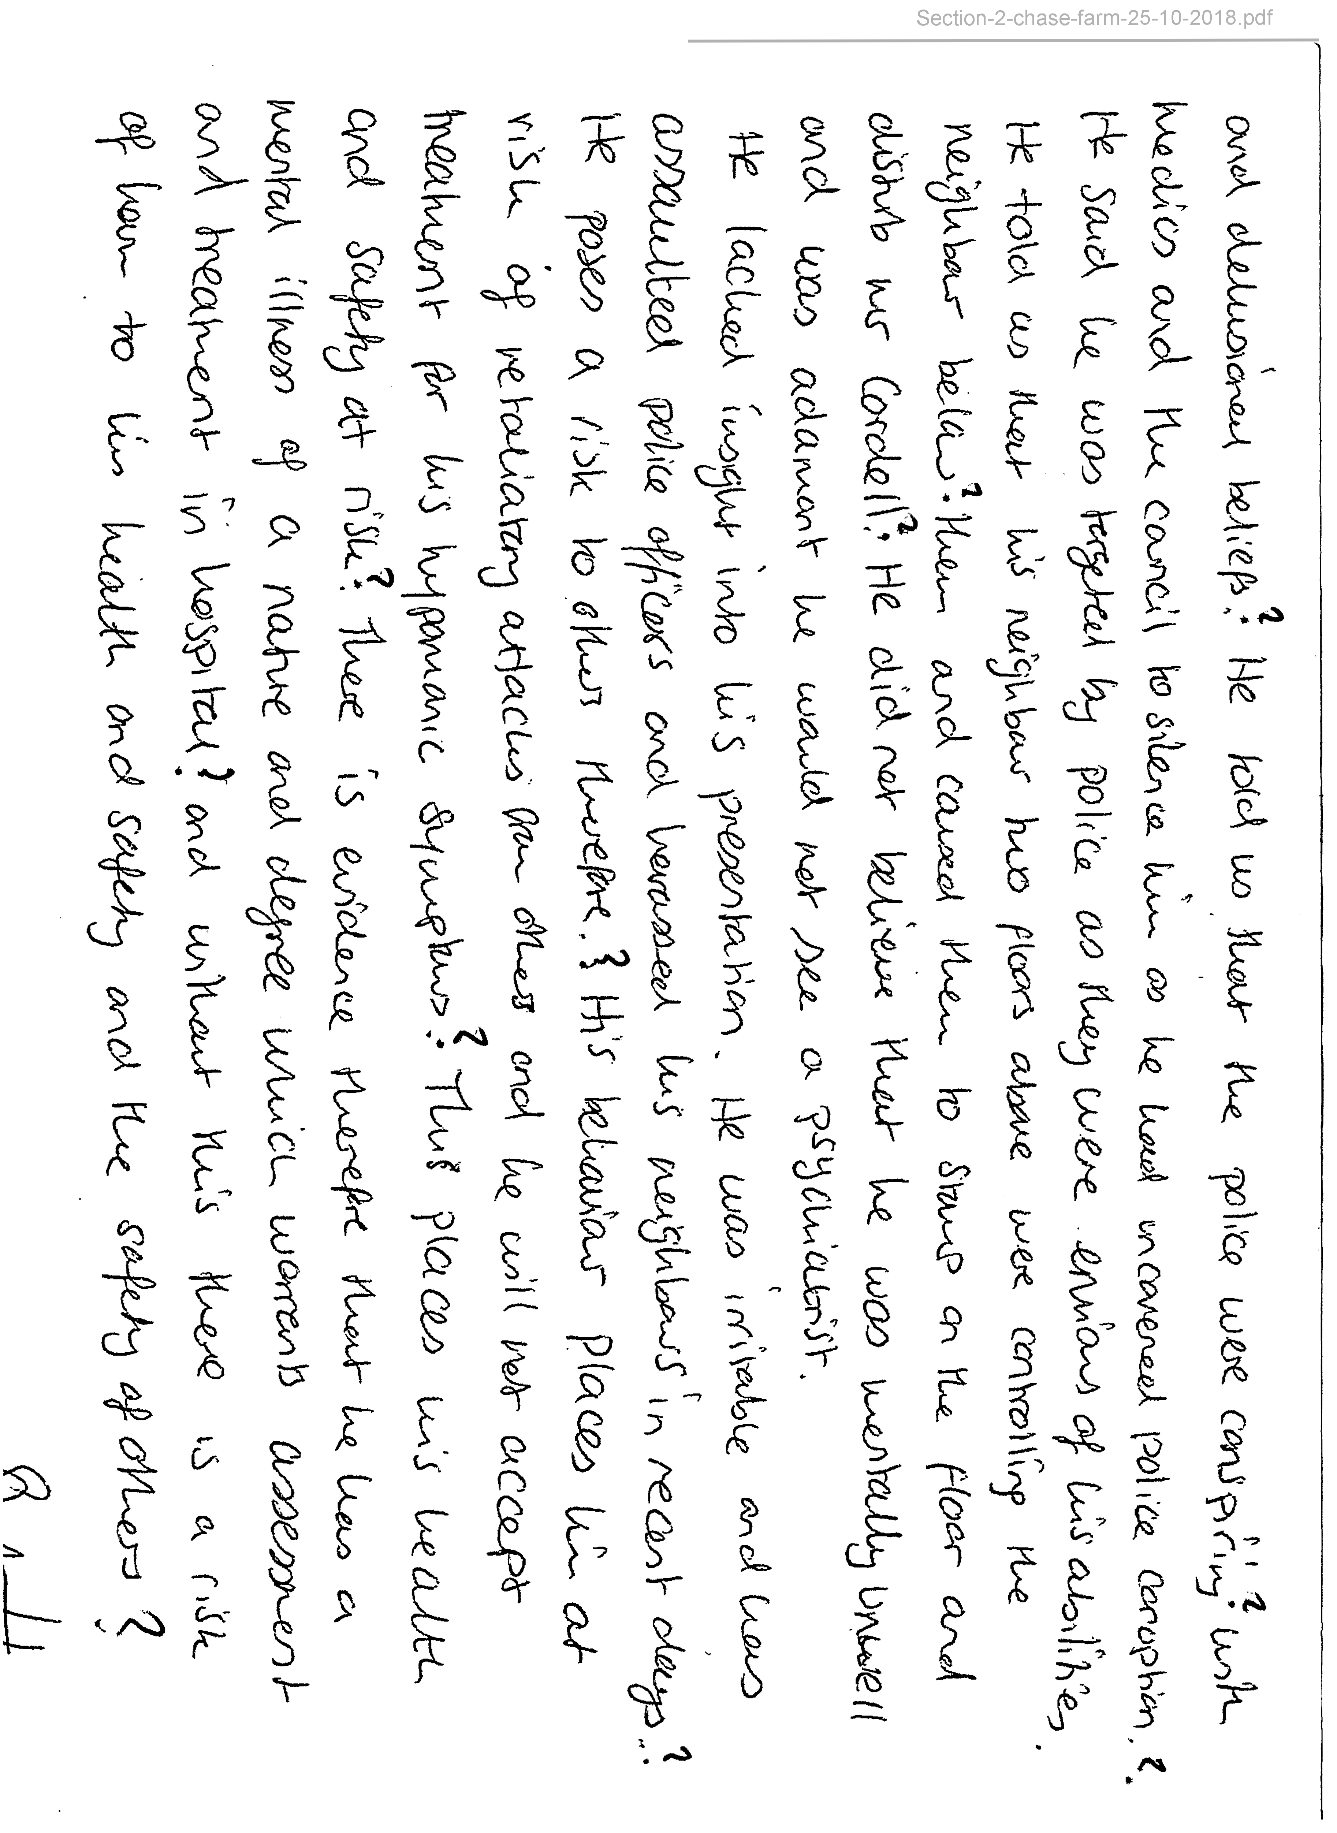 Section-2-chase-farm-25-10-2018.pdf
and delusional beliefs.? He told us that the police were conspiring? with
medics and the council to silence him as he had uncovered police coruption.?
He said he was targeted by police as they were envious of his abilities.
He told us that his neighbour two floors above were controlling the
neighbour below.? them and caused them to stamp on the floor and
disturb mr Cordell.? He did not believe that he was mentally unwell
and was adamant he would not see a psychiatrist.
He lacked insight into his presentation. He was irritable and has
assaulted police officers and harassed his neighbours in recent days..?
He poses a risk to others therefore.? His behaviour places him at
risk of retaliatory attacks from others and he will not accept
treatment for his hypomanic symptoms.? This places his health
and safety at risk.? There is evidence therefore that he has a
mental illness of a nature and degree which warrants assessment
and treatment in hospital.? and without this there is a risk
of harm to his health and safety and the safety of others?